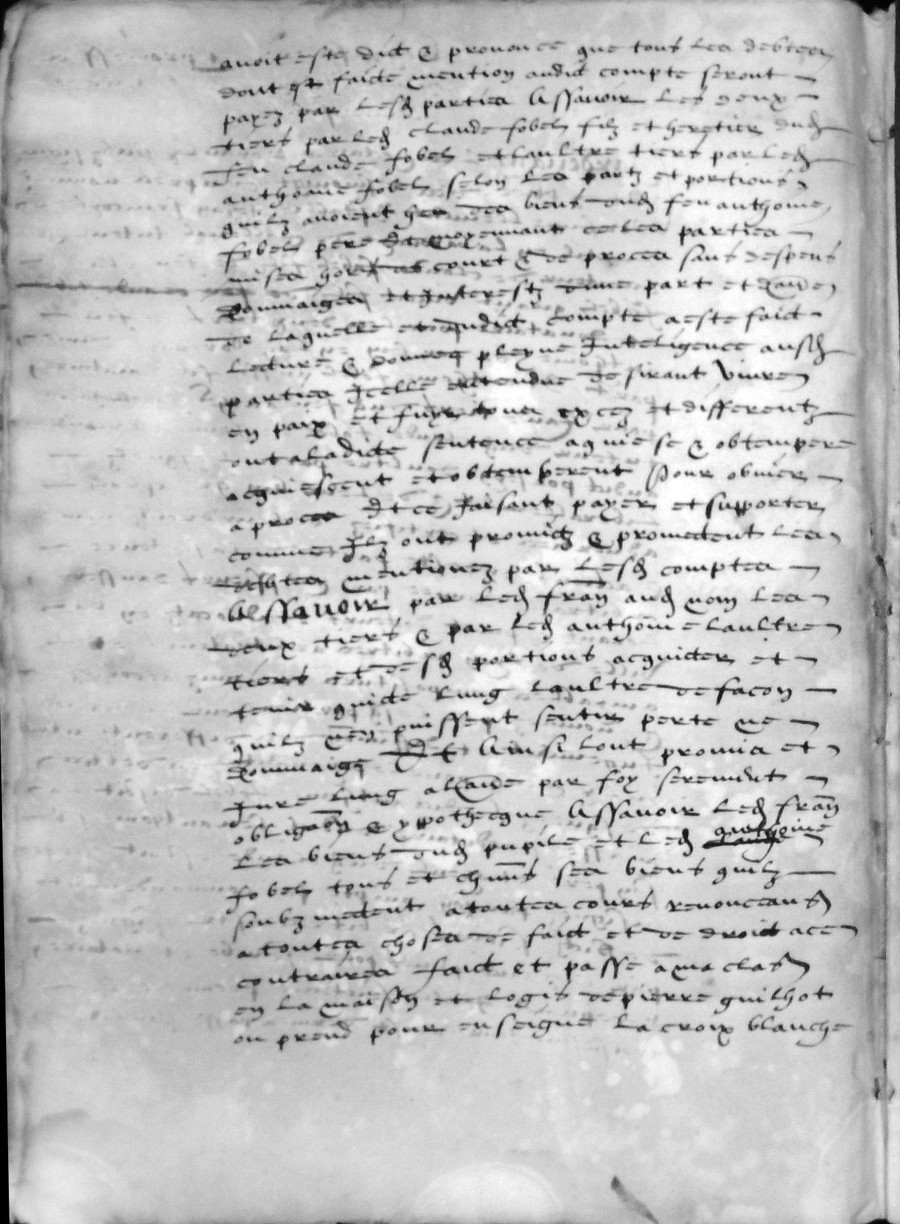 avoit este dict & prononce que tous les debtes
dont est faicte mention audict compte seront
payez par lesd parties Assavoir les deux
tiers par led claude fobel filz et heretier dud
feu claude fobel et laultre tiers par led
anthoine fobel selon les partz et portions
quilz avoient des biens dud feu anthoine
fobel pere Et moyennant ce les parties
mises hors de court & de proces sans despens
dommaiges et Interestz dune part et daultre
de laquelle et dudict compte a este faict
lecture & donnee pleyne Inteligence ausd
parties Icelle entendue desirant vivre
en paix et fuyr tous exces et differentz
ont a ladicte sentence acquiesse & obtempere
acquiessent et obtemperent pour obvier
a proces Et ce faisant payer et supporter
comme Ilz ont promictz & promectent les
debtes mentionez par lesd comptes
Assavoir par led fran aud nom les
deux tiers & par led anthoine laultre
tiers et desd portions acquicter et
tenir quicte lung laultre de facon
quilz nen puissent sentir perte ne
dommaige Et Ainsi lont promis et
Jure lung a laultre par foy serement
obligaon & yppothecque Assavoir led fran
les biens dud pupile et led anthoine
fobel tous et chuns ses biens quilz
soubzmectent a toutes cours renonceans
a toutes choses de faict et de droict a ce
contraires faict et passe a
en la maison et logis de pierre guilhot
ou prend pour enseigne la croix blanche